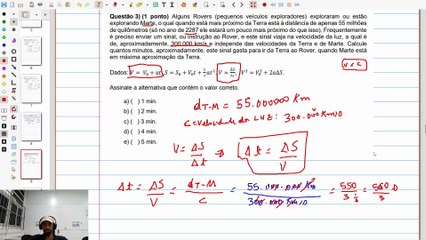 Questão 3) (1 ponto) Alguns Rovers (pequenos veículos exploradores) exploraram ou estão
explorando Marte, o qual quando está mais próximo da Terra está à distância de apenas 55 milhões
de quilômetros (só no ano de 2287 ele estará um pouco mais próximo do que isso). Frequentemente
é preciso enviar um sinal, ou instrução ao Rover, e este sinal viaja na velocidade da luz, a qual é
de, aproximadamente, 300.000 km/s e independe das velocidades da Terra e de Marte. Calcule
quantos minutos, aproximadamente, este sinal gasta para ir da Terra ao Rover, quando Marte está
em máxima aproximação da Terra.
Dados: V = V₀ + at, S = S₀ + V₀t + ½at², V = ΔS/Δt, V² = V₀² + 2aΔS.
Assinale a alternativa que contém o valor correto.
a) ( ) 1 min.
b) ( ) 2 min.
c) ( ) 3 min.
d) ( ) 4 min.
e) ( ) 5 min.
dT-M = 55.000000 Km
C = Velocidade da LUZ: 300.000 Km/s
V = ΔS/Δt → Δt = ΔS/V
Δt = ΔS/V = dT-M/C = 55.000.000 Km/300.000 Km/s = 550/3 = 550/3 s